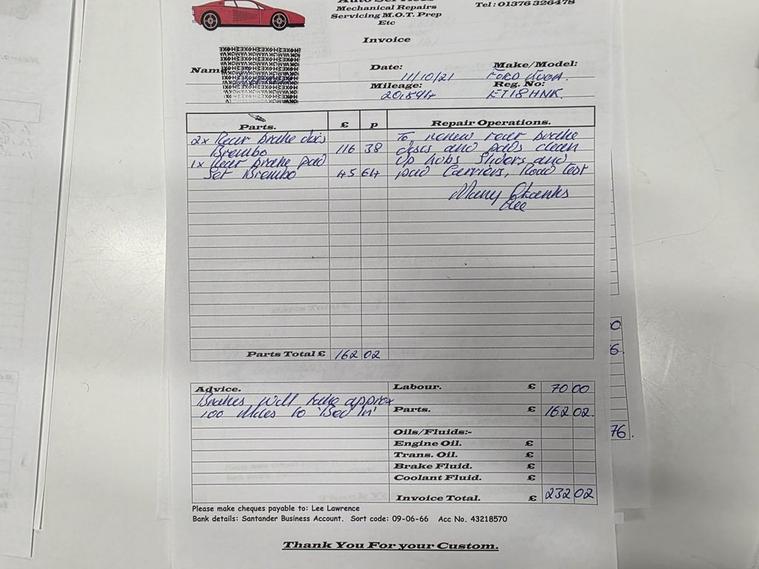 Auto Services
Mechanical Repairs
Servicing M.O.T. Prep
Etc
Tel: 01376 326478
Invoice
Name
Date: 11/10/21
Make/Model: FORD KUGA.
Mileage: 20,894
Reg. No: ET18HNK.
Parts. £ p
2x Rear brake discs
Brembo 116 38
1x Rear brake pad
Set Brembo 45 64
Parts Total £ 162 02
Repair Operations.
To renew rear brake
discs and pads clean
up hubs Sliders and
pad Carriers, Road Test
Many Thanks
Lee
Advice.
Brakes will take approx
100 Miles to 'Bed In'
Labour. £ 70 00
Parts. £ 162 02.
Oils/Fluids:-
Engine Oil. £
Trans. Oil. £
Brake Fluid. £
Coolant Fluid. £
Invoice Total. £ 232 02
Please make cheques payable to: Lee Lawrence
Bank details: Santander Business Account. Sort code: 09-06-66 Acc No. 43218570
Thank You For your Custom.
0
6.
76.